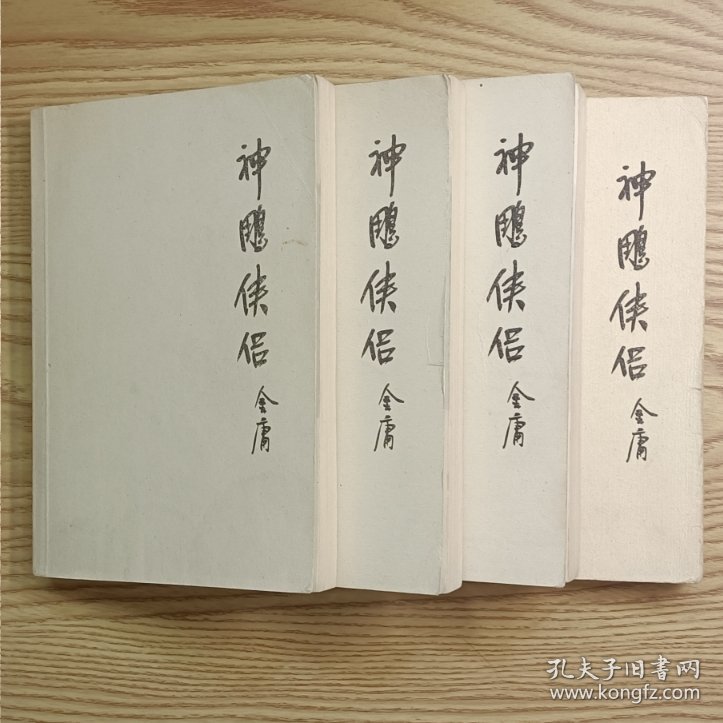 神鵰俠侣
金庸
神鵰俠侣
金庸
神鵰俠侣
金庸
神鵰俠侣
金庸
孔夫子旧書网
www.kongfz.com